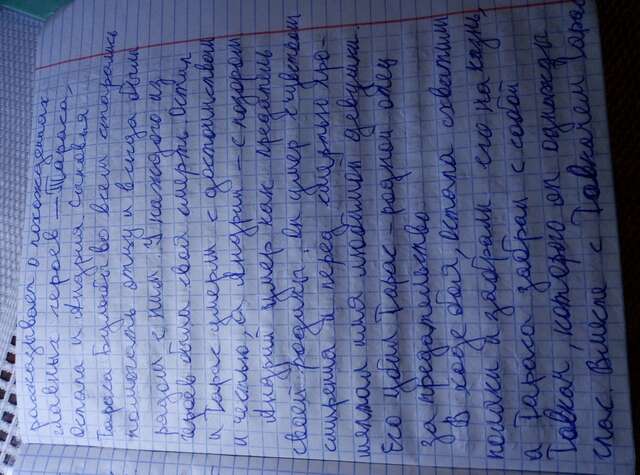 рассказывает о похождениях
главных героев – Тараса,
Остапа и Андрия. Сыновья
Тараса Бульбы во всём старались
помогать отцу и всегда были
рядом с ним. У каждого из
героев была своя смерть. Остап
и Тарас умерли с достоинством
и честью, а Андрий – с позором
Андрий умер как предатель
своей родины. Он умер в чувством
смирения и перед смертью про-
шептал имя любимой девушки.
Его убил Тарас – родной отец
за предательство.
В ходе боя, Остапа схватили
поляки и забрали его на казнь,
а Тараса забрал с собой
Товкач, которого он однажды
спас. Вместе с Товкачем Тарас